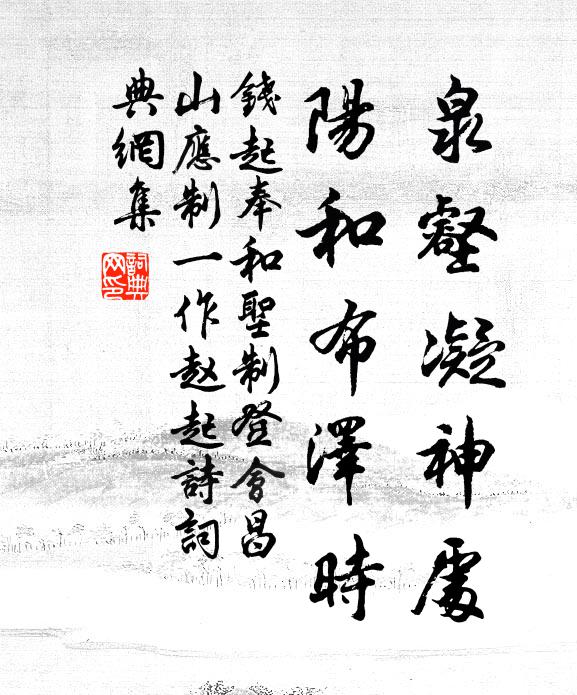 泉壑凝神處
陽和布澤時
錢起奉和聖制登會昌
山應制一作赵起詩詞
典網集
詞典網印